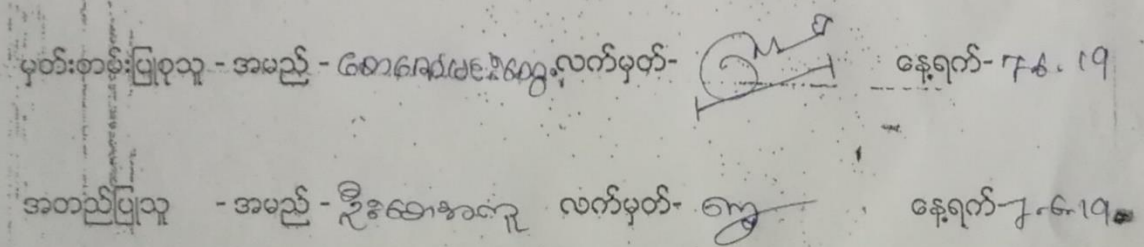 မှတ်တမ်းပြုစုသူ - အမည် - လက်မှတ်- နေ့ရက်- 7.6.19
အတည်ပြုသူ - အမည် - ဦးစောအာကူ လက်မှတ်- နေ့ရက်-7.6.19